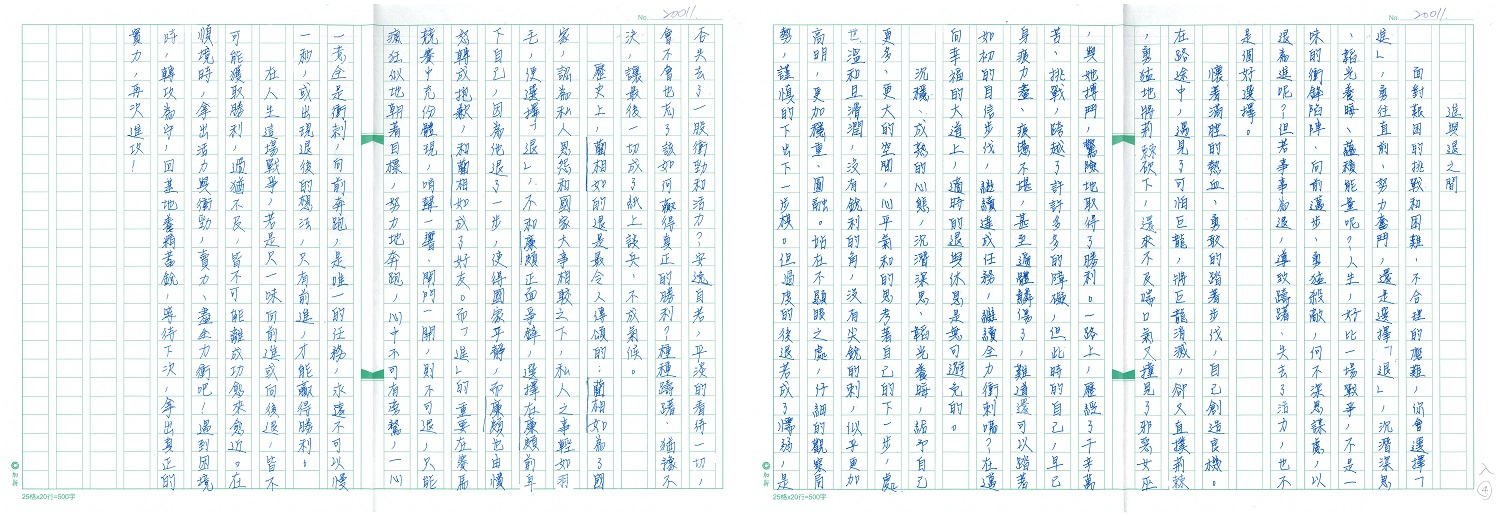 No. 20011.
進與退之間
面對艱困的挑戰和困難、不合理的磨難，你會選擇「
進」，勇往直前、努力奮鬥，還是選擇「退」，沉潛深思
、韜光養晦、蘊積能量呢？人生，好比一場戰爭，不是一
味的衝鋒陷陣、向前邁步、勇猛殺敵，何不深思謀慮，以
退為進呢？但若事事為退，導致躊躇、失去了活力，也不
是個好選擇。
懷著滿腔的熱血、勇敢的踏著步伐，自己創造良機。
在路途中，遇見了可怕巨龍，將巨龍消滅，卻又直撲荊棘
，勇猛地將荊棘砍下，還來不及喘口氣又撞見了邪惡女巫
，與她搏鬥，驚險地取得了勝利。一路上，歷經了千辛萬
苦、挑戰，跨越了許許多多的障礙，但此時的自己，早已
身疲力盡、痕瘍不堪，甚至遍體鱗傷了，難道還可以踏著
如初的自信步伐，繼續達成任務，繼續全力衝刺嗎？在邁
向幸福的大道上，適時的退與休息是無可避免的。
沉穩、成熟的心態，沉潛深思、韜光養晦，給予自己
更多、更大的空間，心平氣和的思考著自己的下一步，處
世溫和且滑潤，沒有銳利的角，沒有尖銳的刺，似乎更加
高明，更加穩重、圓融。站在不顯眼之處，仔細的觀察局
勢，謹慎的下出下一步棋。但過度的後退若成了懦弱，是
25格x20行=500字
入④
No. 20011.
否失去了一股衝勁和活力？安逸自若，平淡的看待一切，
會不會也忘了該如何贏得真正的勝利？種種躊躇、猶豫不
決，讓最後一切成了紙上談兵、不成氣候。
歷史上，藺相如的退是最令人傳頌的：藺相如為了國
家，認為私人恩怨和國家大事相較之下，私人之事輕如羽
毛，便選擇「退」，不和廉頗正面爭鋒，選擇在廉頗前卑
下自己，因為他退了一步，使得國家平靜，而廉頗也由憤
怒轉成抱歉，和藺相如成了好友。而「進」的重要在賽馬
競賽中充份體現，哨聲一響、閘門一開，則不可退，只能
瘋狂似地朝著目標，努力地奔跑，心中不可有雜鶩，一心
一意全是衝刺，向前奔跑，是唯一的任務，永遠不可以慢
一秒，或出現退後的想法，只有前進，才能贏得勝利。
在人生這場戰爭，若是只一味向前進或向後退，皆不
可能獲取勝利，過猶不及，皆不可能離成功愈來愈近。在
順境時，拿出活力與衝勁，賣力、盡全力衝吧！遇到困境
時，轉攻為守，回基地養精蓄銳，等待下次，拿出真正的
實力，再次進攻！
25格x20行=500字